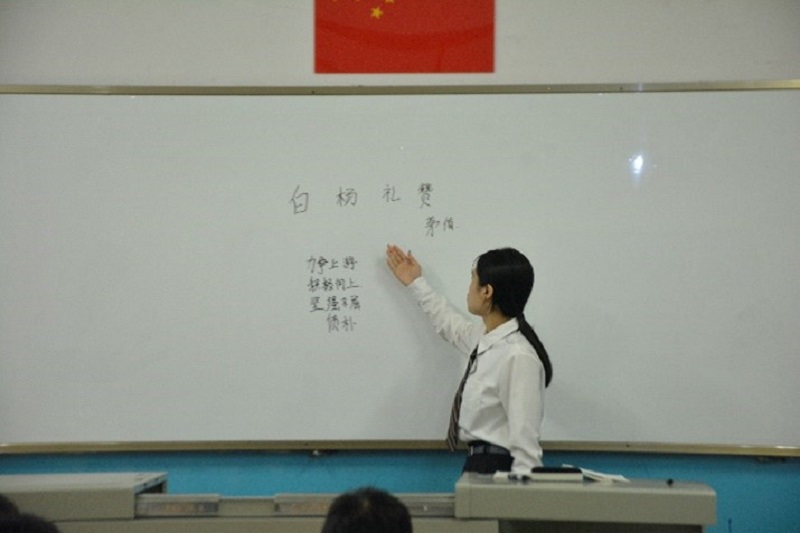 白杨礼赞
茅盾
力争上游
坚强不屈
质朴